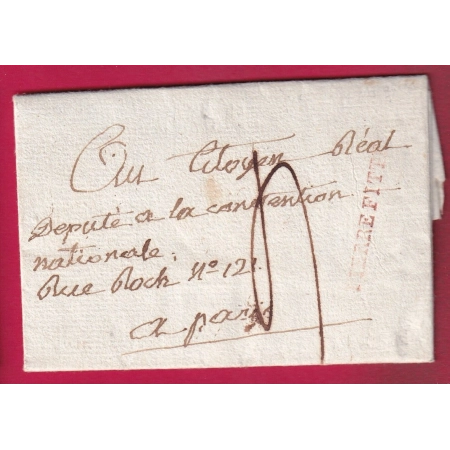 Au Citoyen Réal
Deputé a la convention
nationale.
Rue Roch N° 121
a paris
PIERREFITTE